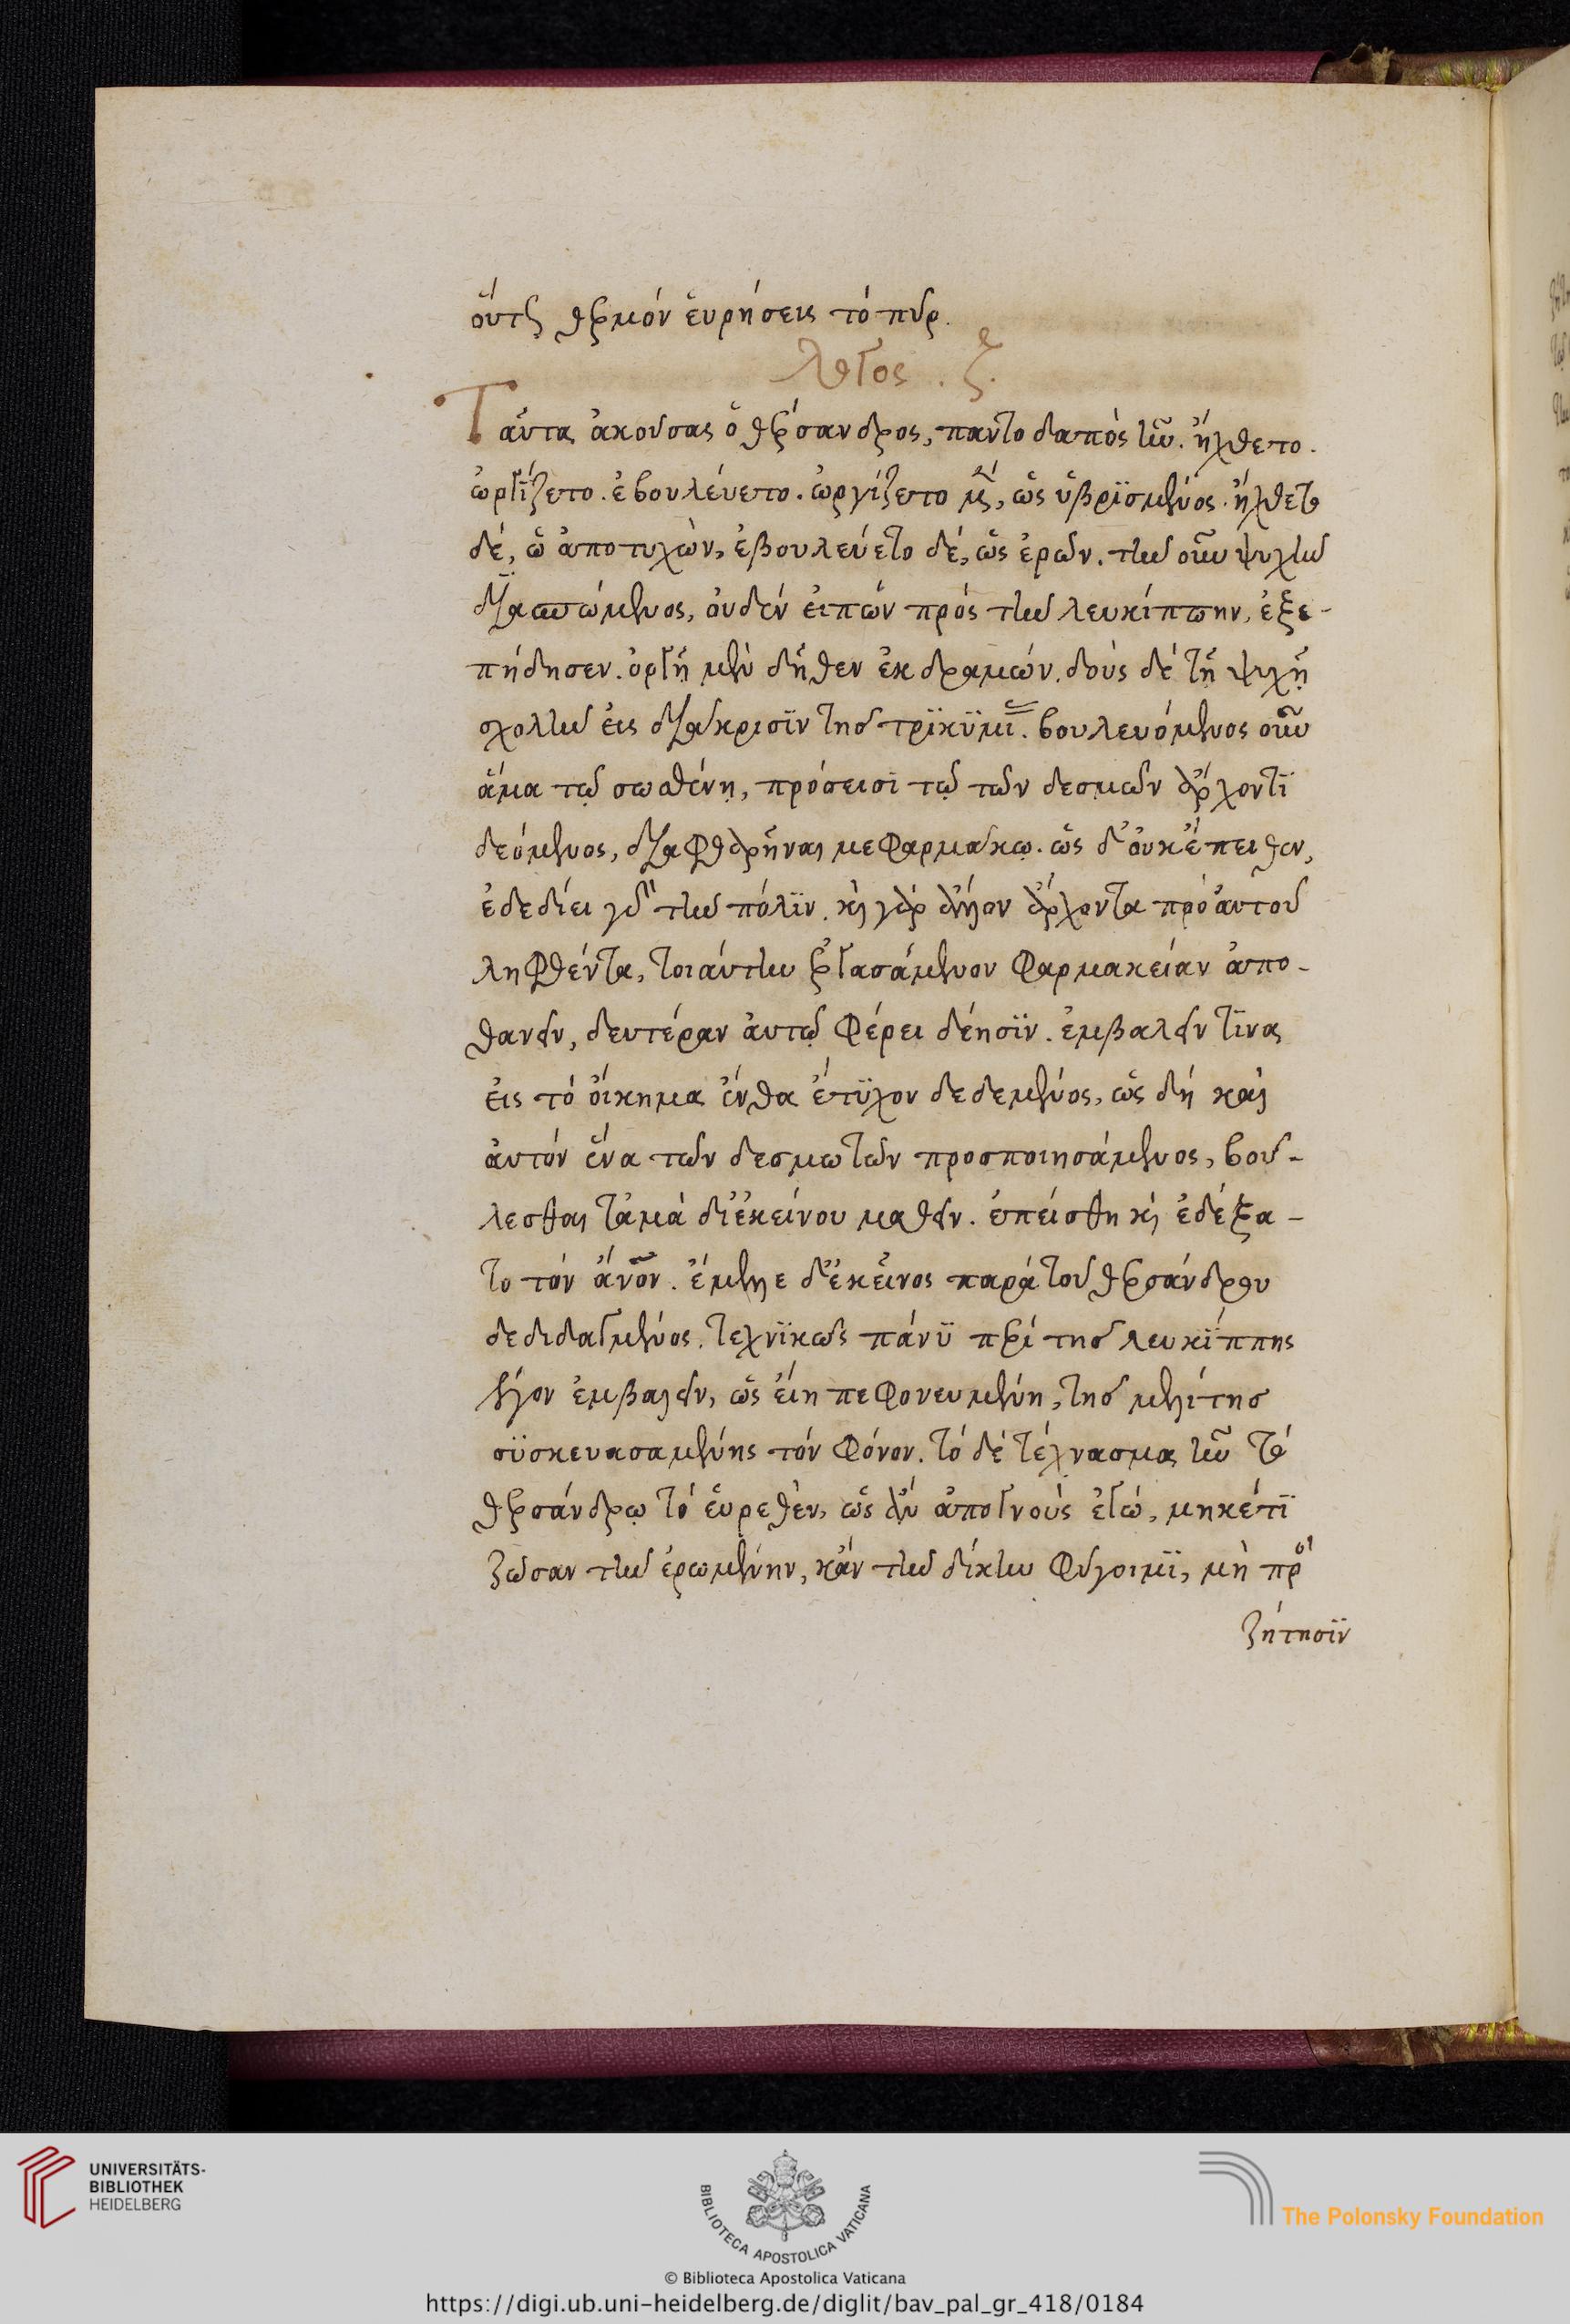 ὅντς θερμόν ἑυρήσεις τό πῦρ.
λόγος . ζ.
Ταῦτα ἀκούσας ὁ θέρσανδρος, παντοδαπός ἦν. ἤχθετο.
ὠργίζετο. ἐβουλέυετο. ὠργίζετο μὲν, ὡς ὑβρϊσμένος. ἤχθετο
δέ, ὡ ἀποτυχὼν, ἐβουλεύετο δέ, ὡς ἐρῶν. τὴν οὖν ψυχὴν
διασπώμενος, ὀυδέν ἐιπών πρός τὴν λευκίππην, ἐξε-
πήδησεν. ὀργῆ μὲν δῆθεν ἐκδραμών. δούς δέ τῆ ψυχῆ
σχολὴν ἐις διάκρισϊν τῆσ τρϊκϋμί. βουλευόμενος οὖν
ἅμα τῷ σωσθένῃ, πρόσεισι τῷ τῶν δεσμῶν ἄρχοντϊ
δεόμενος, διαφθαρῆναι με φαρμάκῳ. ὡς δ' ὀυκ ἔπειθεν,
ἐδεδίει γὰρ τὴν πόλϊν. κὶ γὰρ ἄλλον ἄρχοντα πρό ἀυτοῦ
ληφθέντα, τοιάυτην ἐργασάμενον φαρμακείαν ἀπο-
θανεῖν, δευτέραν ἀυτῷ φέρει δέησϊν. ἐμβαλεῖν τϊνα
ἐις τό ὄικημα ἔνθα ἔτϋχον δεδεμένος, ὡς δή καὶ
ἀυτόν ἕνα τῶν δεσμωτῶν προσποιησάμενος, βού-
λεσθαι τἀμὰ δϊ ἐκείνου μαθεῖν. ἐπείσθη κὶ ἐδέξα-
το τόν ἄνον. ἔμελλε δ' ἐκεῖνος παρά τοῦ θερσάνδρου
δεδιδαγμένος. τεχνϊκῶς πάνϋ περί τῆσ λευκίππης
λόγον ἐμβαλεῖν, ὡς ἔιη πεφονευμένη, τῆσ μελίτησ
σϋσκευασαμένης τόν φόνον. τό δέ τέχνασμα ἦν τῷ
θερσάνδρῳ τό ἑυρεθέν, ὡς ἂν ἀπογνούς ἐγώ, μηκέτϊ
ζῶσαν τὴν ἐρωμένην, κἄν τὴν δίκην φύγοιμϊ, μὴ πρὸς
ζήτησϊν
UNIVERSITÄTS-
BIBLIOTHEK
HEIDELBERG
BIBLIOTECA APOSTOLICA VATICANA
The Polonsky Foundation
© Biblioteca Apostolica Vaticana
https://digi.ub.uni-heidelberg.de/diglit/bav_pal_gr_418/0184